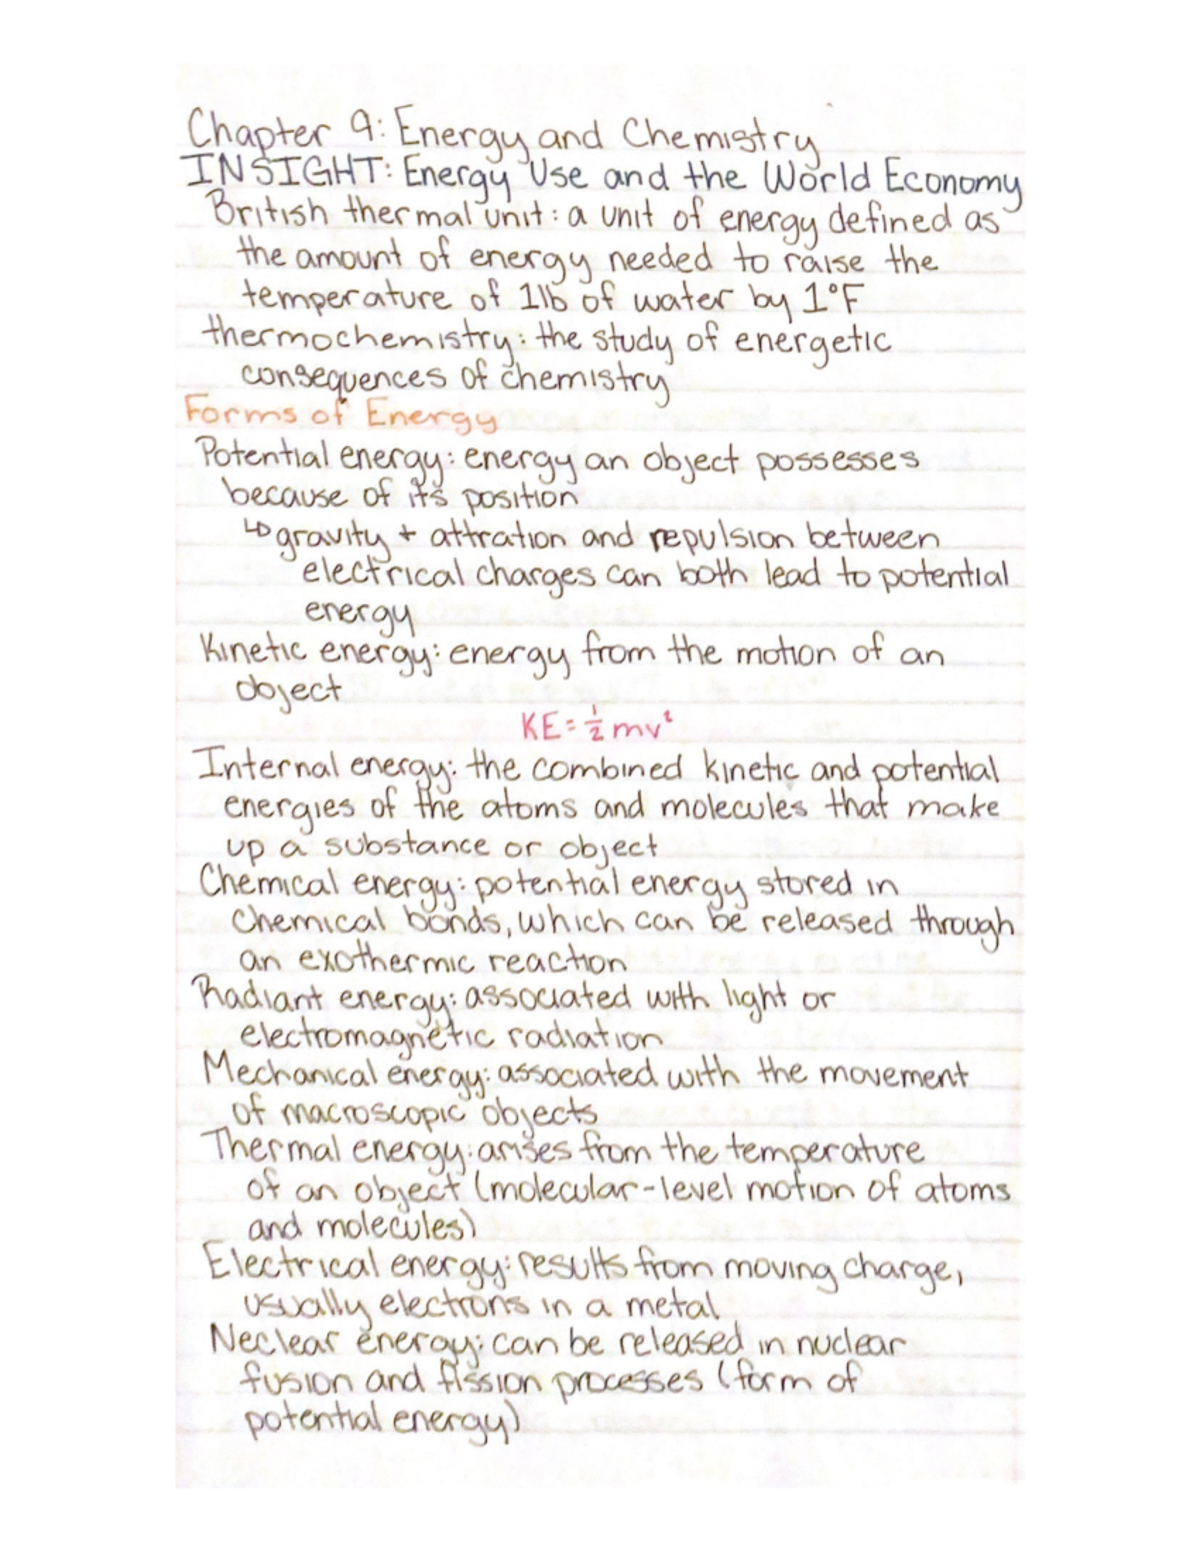 Chapter 9: Energy and Chemistry
INSIGHT: Energy Use and the World Economy
British thermal unit: a unit of energy defined as
the amount of energy needed to raise the
temperature of 1lb of water by 1°F
thermochemistry: the study of energetic
consequences of chemistry
Forms of Energy
Potential energy: energy an object possesses
because of its position
↳ gravity + attration and repulsion between
electrical charges can both lead to potential
energy
Kinetic energy: energy from the motion of an
object
KE = ½mv²
Internal energy: the combined kinetic and potential
energies of the atoms and molecules that make
up a substance or object
Chemical energy: potential energy stored in
chemical bonds, which can be released through
an exothermic reaction
Radiant energy: associated with light or
electromagnetic radiation
Mechanical energy: associated with the movement
of macroscopic objects
Thermal energy: arises from the temperature
of an object (molecular-level motion of atoms
and molecules)
Electrical energy: results from moving charge,
usually electrons in a metal
Neclear energy: can be released in nuclear
fusion and fission processes (form of
potential energy)